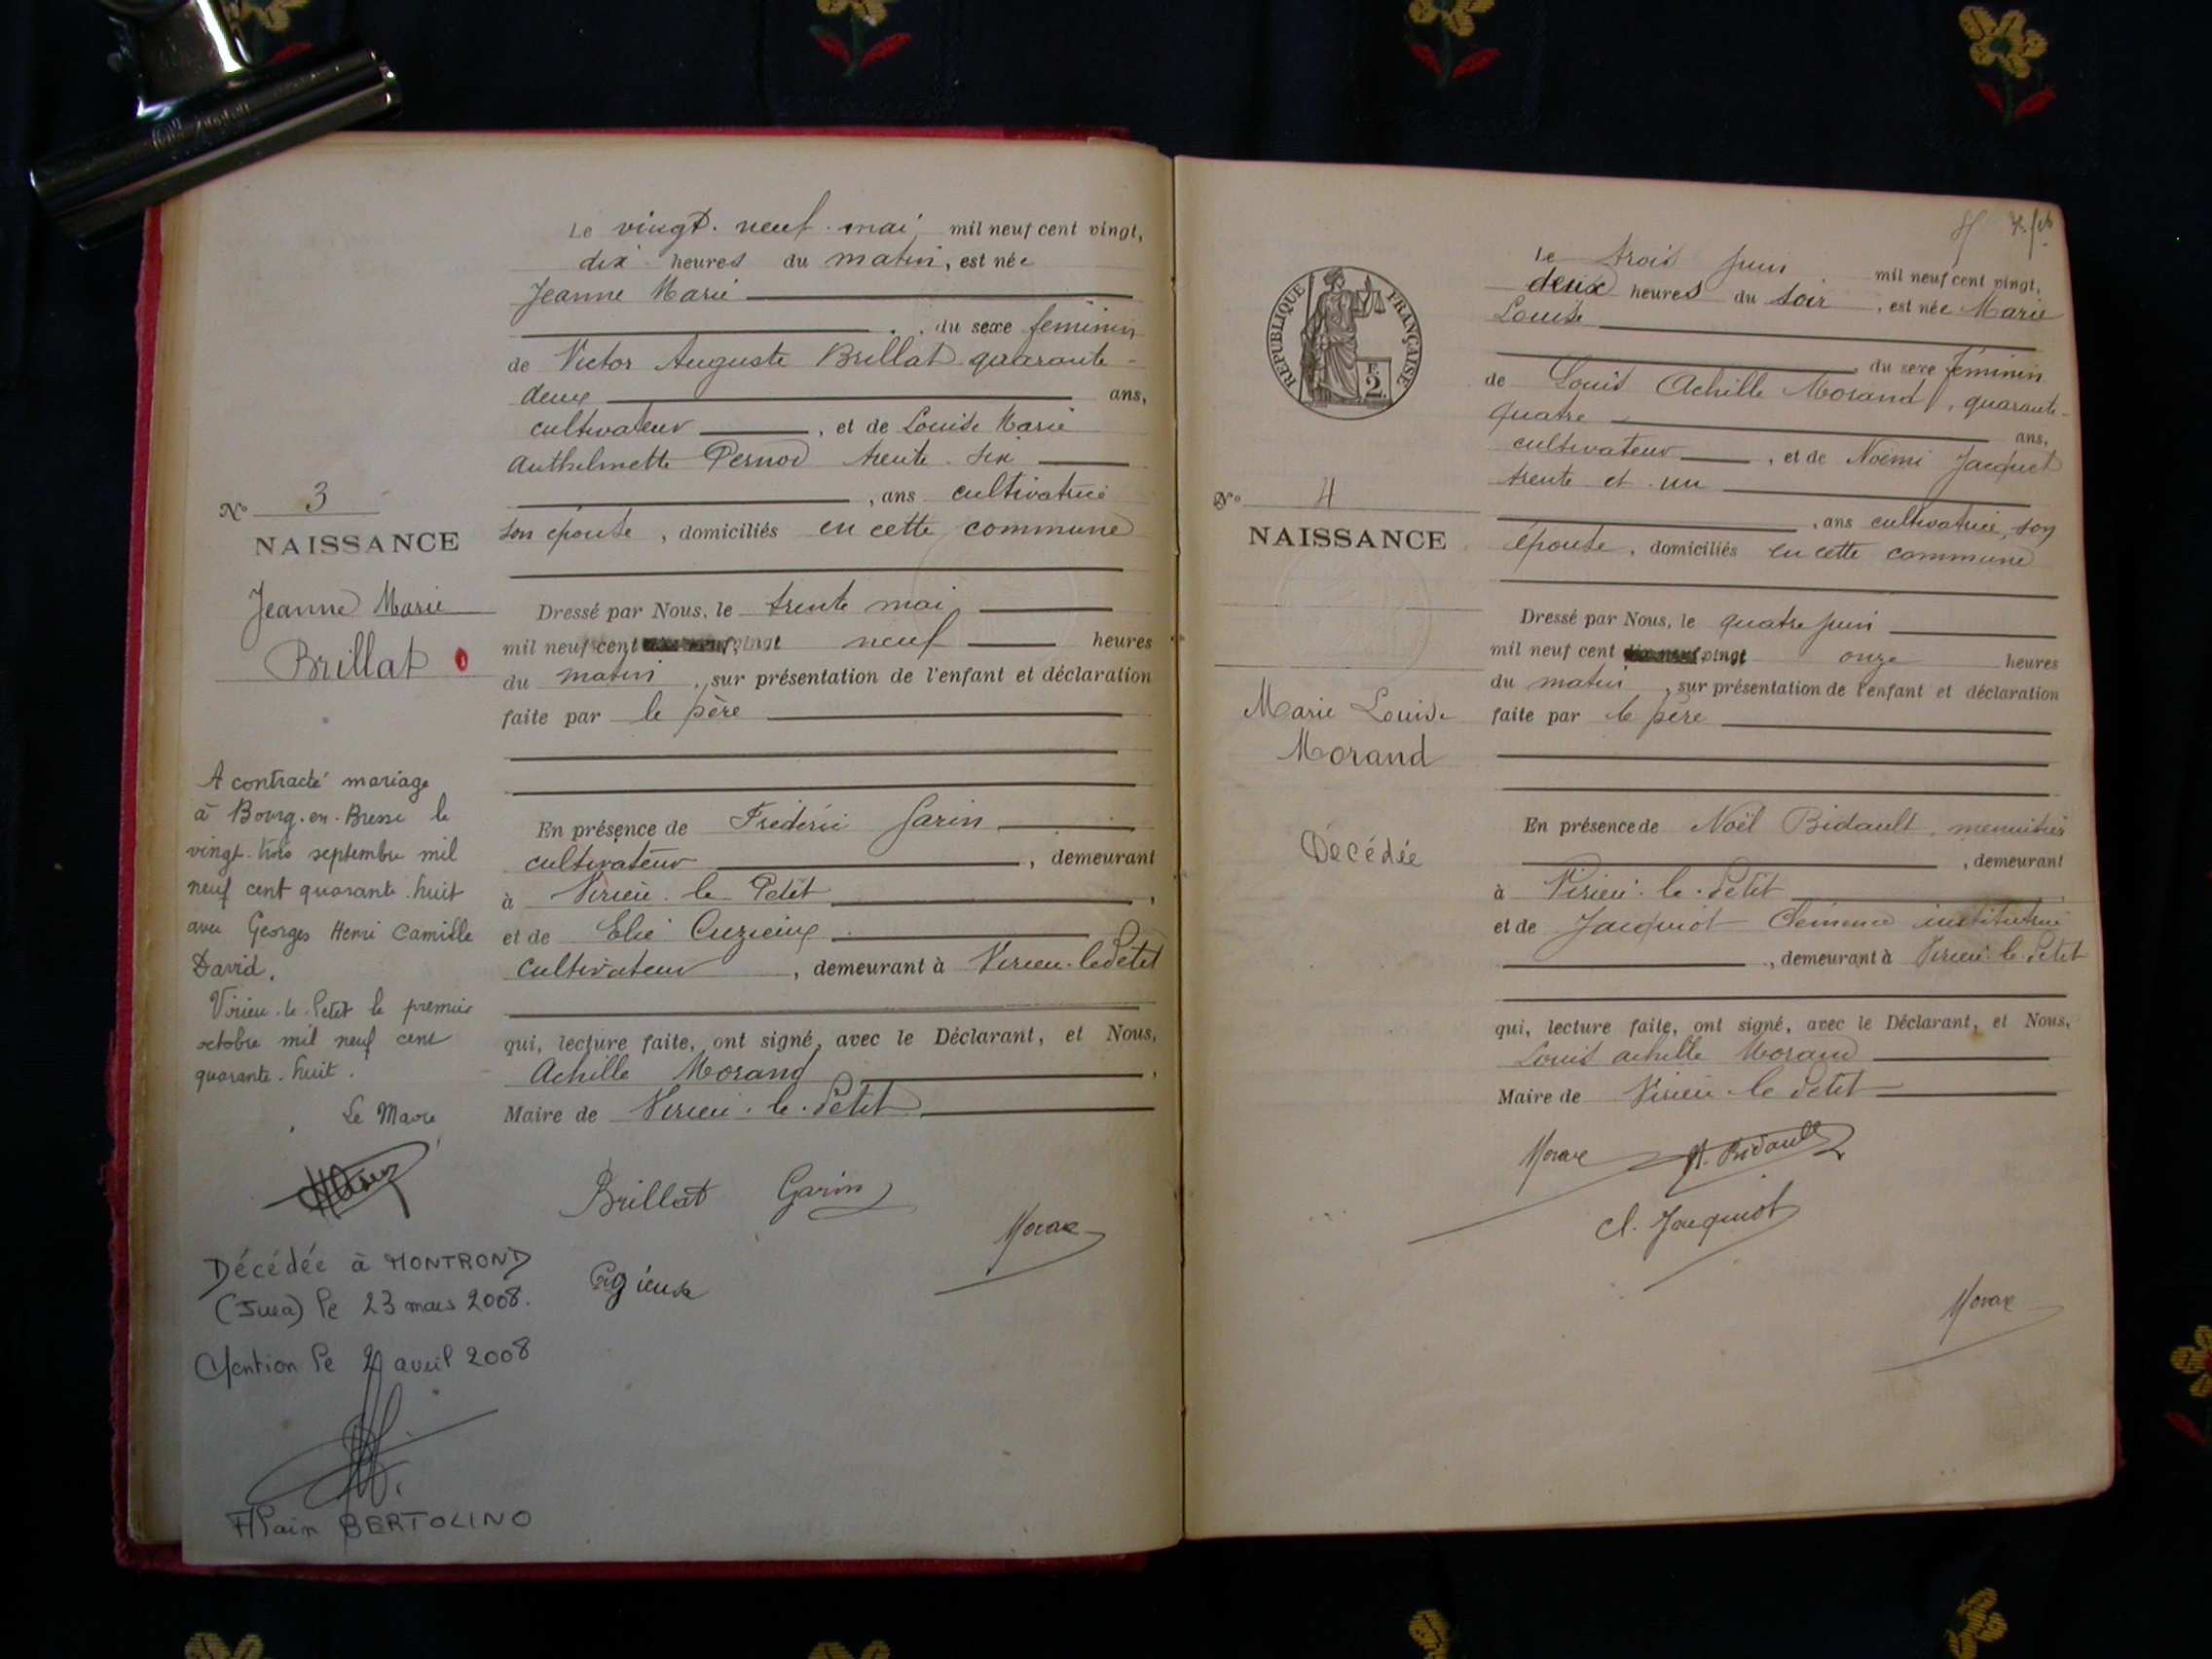 Le vingt. neuf. mai, mil neuf cent vingt,
dix heures du matin, est née
Jeanne Marie
du sexe feminin
de Victor Auguste Brillat quarante-
deux ans,
cultivateur, et de Louise Marie
Anthelmette Pernod trente six
, ans cultivatrice
son épouse, domiciliés en cette commune
N° 3
NAISSANCE
Jeanne Marie
Brillat
Dressé par Nous, le trente mai
mil neuf cent vingt neuf heures
du matin, sur présentation de l'enfant et déclaration
faite par le père
En présence de Frédéric Garin
cultivateur, demeurant
à Virieu. le Petit,
et de Elie Cuzieux
cultivateur, demeurant à Virieu. le Petit
qui, lecture faite, ont signé, avec le Déclarant, et Nous,
Achille Morand,
Maire de Virieu. le. Petit
Brillat Garin
A contracté mariage
à Bourg. en. Bresse le
vingt. trois septembre mil
neuf cent quarante. huit
avec Georges Henri Camille
David.
Virieu. le. Petit le premier
octobre mil neuf cent
quarante. huit.
Le Maire
Décédée à MONTROND
(Jura) le 23 mars 2008.
Mention le avril 2008
Alain BERTOLINO
Le trois Juin mil neuf cent vingt,
deux heures du soir, est née Marie
Louise
du sexe féminin
de Louis Achille Morand, quarante-
quatre ans,
cultivateur, et de Noémi Jacquet
trente et un
, ans cultivatrice, son
épouse, domiciliés en cette commune
REPUBLIQUE FRANÇAISE
F.
2.
N° 4
NAISSANCE
Marie Louise
Morand
Décédée
Dressé par Nous, le quatre juin
mil neuf cent vingt onze heures
du matin, sur présentation de l'enfant et déclaration
faite par le père
En présence de Noël Bidault, menuisier
, demeurant
à Virieu. le. Petit
et de Jacquiot Clémence institutrice
, demeurant à Virieu. le. Petit
qui, lecture faite, ont signé, avec le Déclarant, et Nous,
Louis achille Morand
Maire de Virieu le Petit
N. Bidault
Cl. Jacquiot